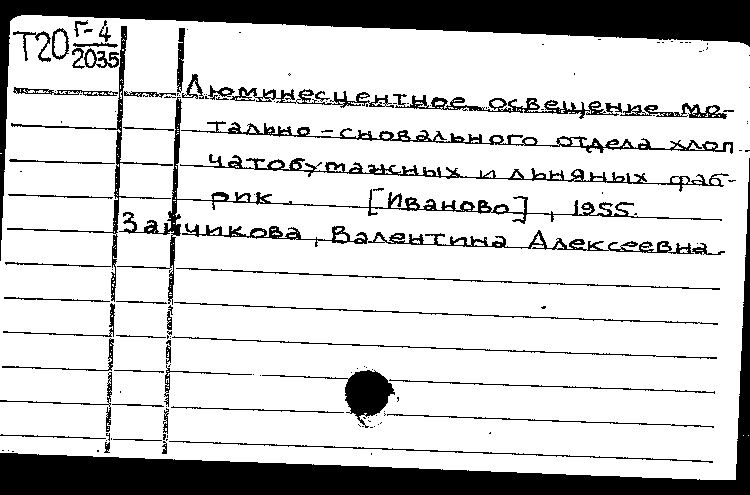 Т20 Г-4
2035
Люминесцентное освещение мо-
тально-сновального отдела хлоп
чатобумажных и льняных фаб-
рик. [Иваново], 1955.
Зайчикова, Валентина Алексеевна.